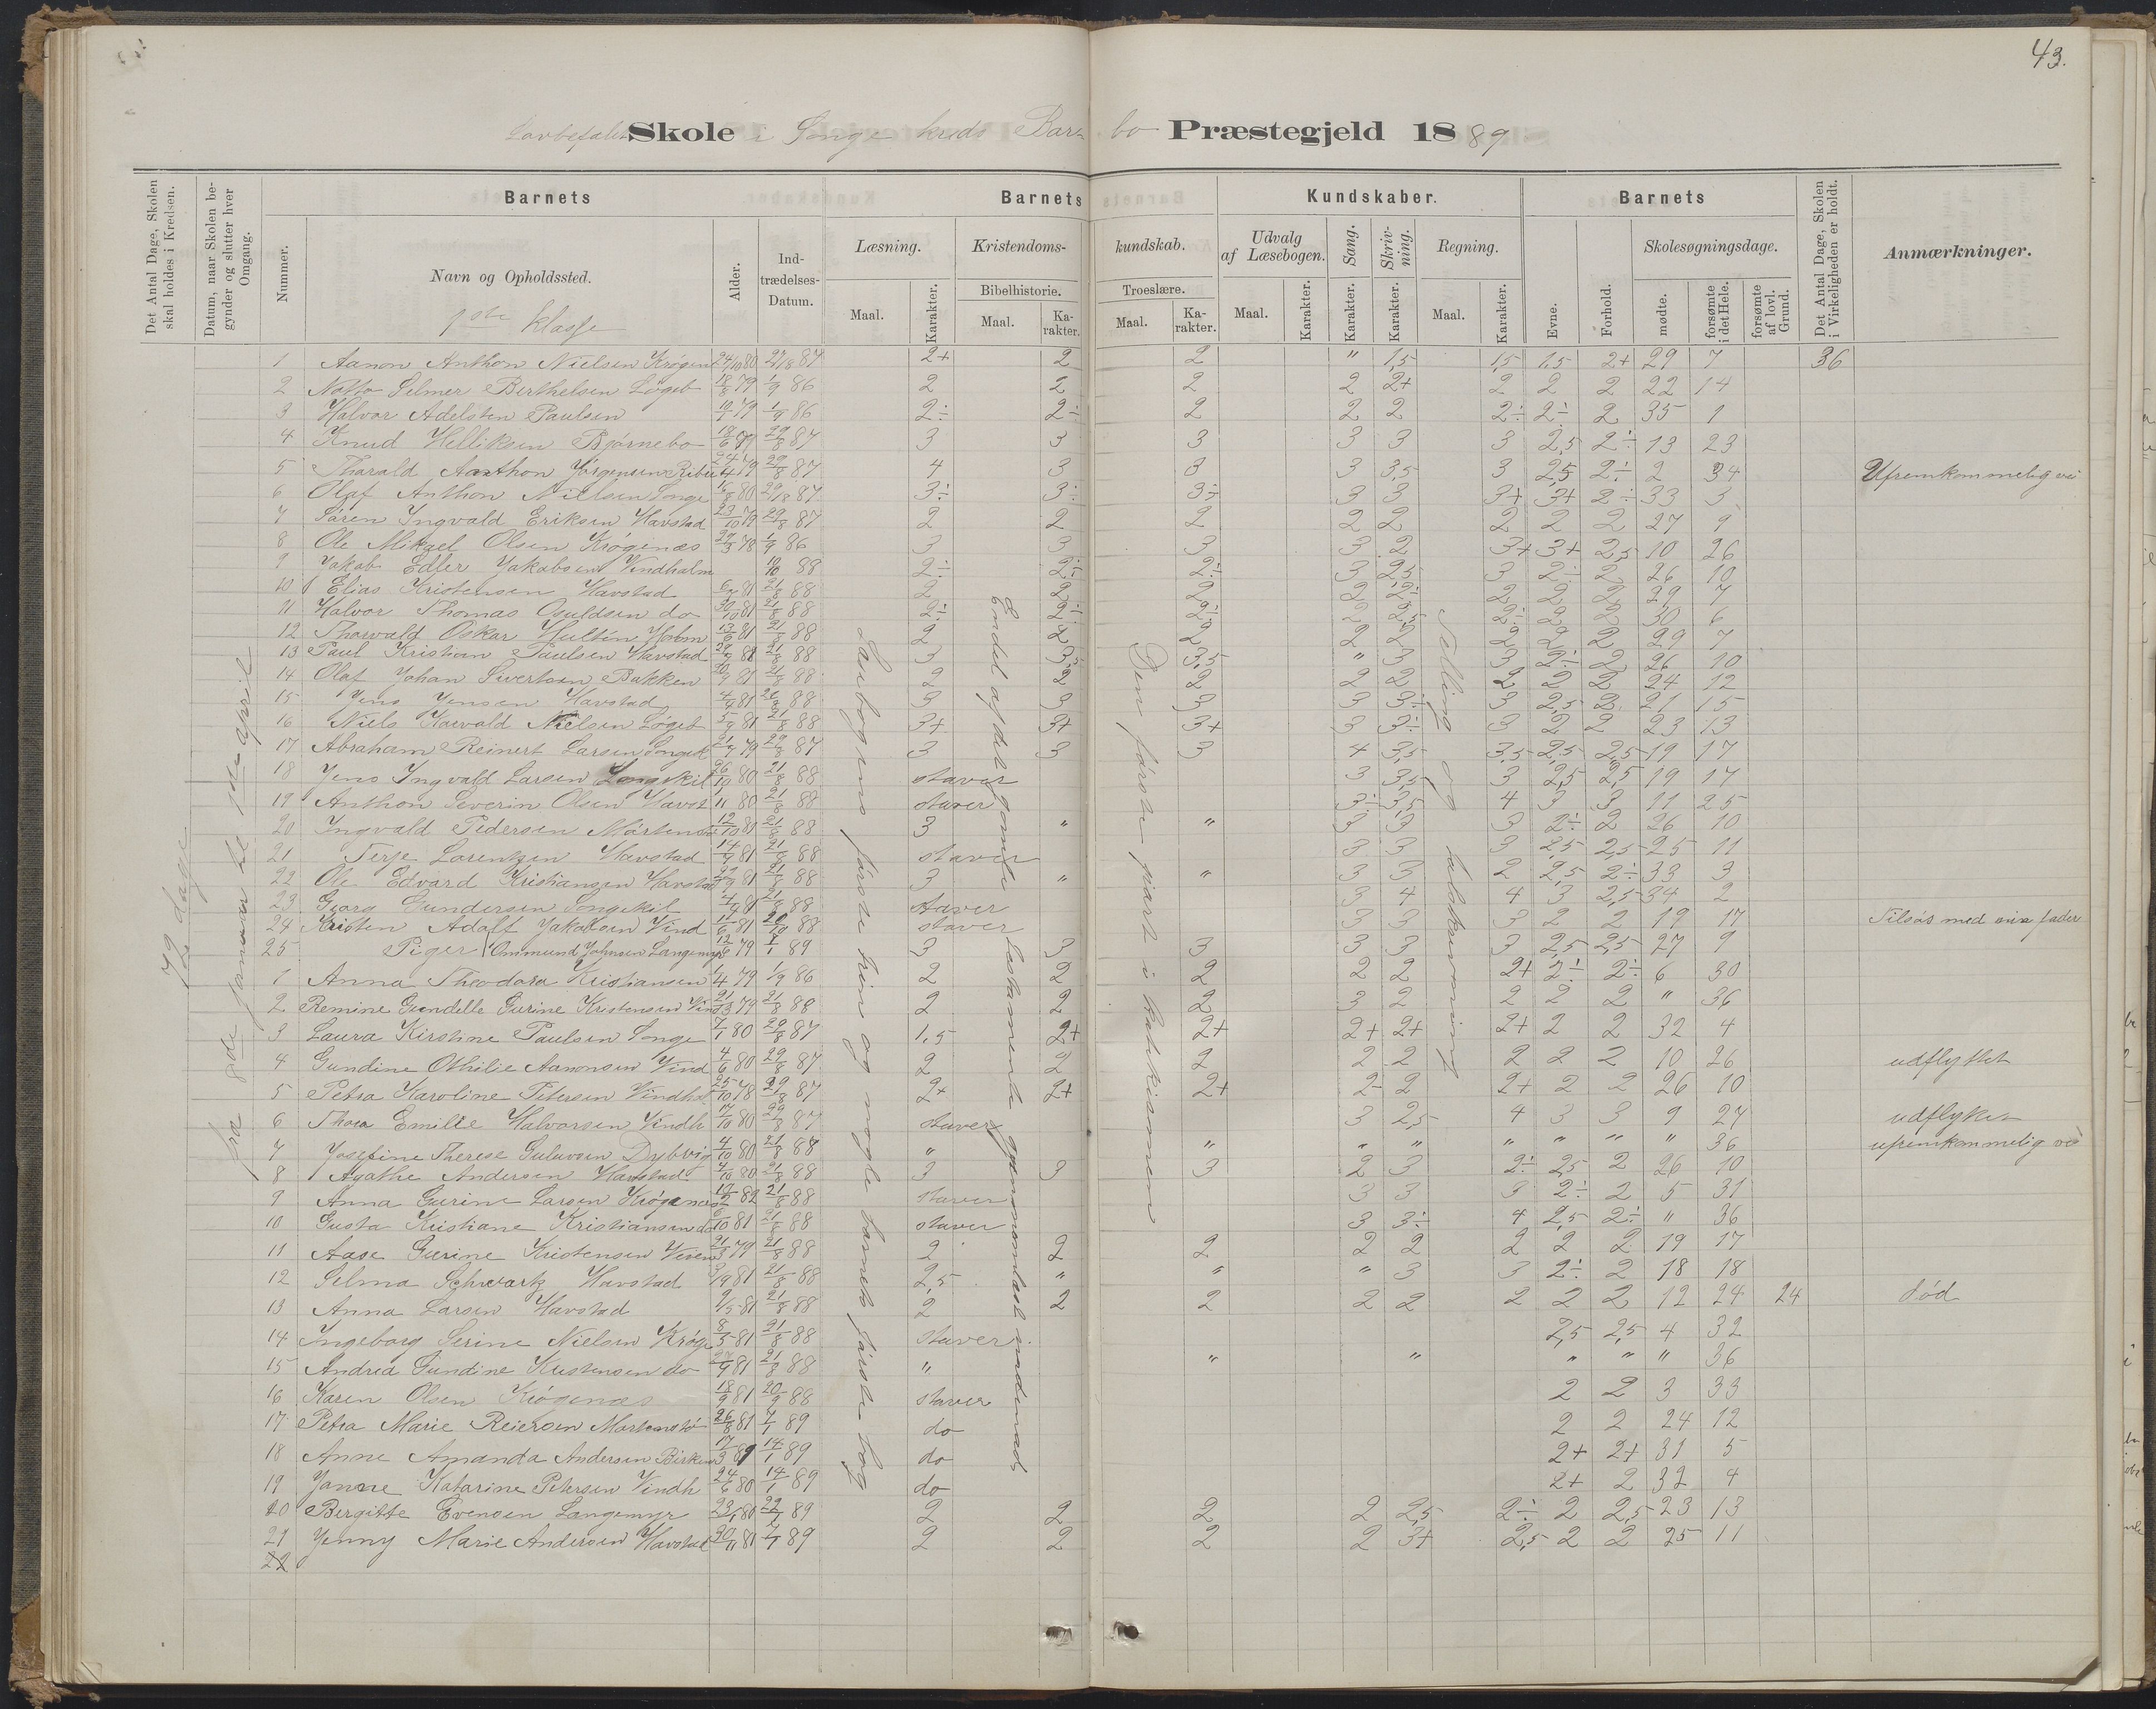 43.
Lovbefalet Skole i Songe kreds Barbo Præstegjeld 1889
Det Antal Dage, Skolen skal holdes i Kredsen.
Datum, naar Skolen begynder og slutter hver Omgang.
Nummer.
Barnets
Navn og Opholdssted.
1ste klasse
Alder.
Indtrædelses-Datum.
Barnets Kundskaber.
Læsning.
Maal.
Karakter.
Kristendomskundskab.
Bibelhistorie.
Maal.
Karakter.
Troeslære.
Maal.
Karakter.
Udvalg af Læsebogen.
Maal.
Karakter.
Sang.
Karakter.
Skrivning.
Karakter.
Regning.
Maal.
Karakter.
Barnets
Evne.
Forhold.
Skolesøgningsdage.
mødte.
forsømte i det Hele.
forsømte af lovl. Grund.
Det Antal Dage, Skolen i Virkeligheden er holdt.
Anmærkninger.
72 dage
fra 8de januar til 1ste april
Læsebogens første trin og nogle barnets første bog
Endel af det gamle testamente gjennemlæst
Den første part i katekismen
Telling og talskrivning
1 Aanon Anthon Nielsen Krøgen 24/10 80 29/8 87 2+ 2 2 " 1,5 1,5 1,5 2+ 29 7 36
2 Selmer Berthelsen Løget 18/8 79 1/9 86 2 2 2 2 2+ 2 2 2 22 14
3 Halvor Adelsten Paulsen 79 1/9 86 2÷ 2÷ 2 2 2 2÷ 2÷ 2 35 1
4 Knud Helliksen Bjørnebo 18/6 79 29/8 87 3 3 3 3 3 3 2,5 2÷ 13 23
5 Tharald Aanthon Jørgensen 79 29/8 87 4 3 3 3 3,5 3 2,5 2÷ 2 34 Ufremkommelig vei
6 Olaf Anthon Nielsen Songe 80 29/8 87 3÷ 3÷ 3÷ 3 3 3+ 3+ 2÷ 33 3
7 Søren Ingvald Eriksen Havstad 23/10 79 29/8 87 2 2 2 2 2 2 2 2 27 9
8 Ole Mikael Olsen Krøgenæs 29/3 78 1/9 86 3 3 3 3 2 3+ 3+ 2,5 10 26
9 Jakob Edler Jakobsen Vindholm 88 2÷ 2÷ 2÷ 3 2,5 3 2÷ 2 26 10
10 Elias Kristensen Havstad 81 21/8 88 2 2 2 2 2÷ 2 2 2 29 7
11 Halvor Thomas Osuldsen do 30/10 81 21/8 88 2÷ 2÷ 2÷ 2 2,5 2÷ 2 2 30 6
12 Thorvald Oskar Hultin Holm 13/6 81 21/8 88 2 2 2 2 2 2 2 2 29 7
13 Paul Kristian Paulsen Havstad 81 21/8 88 3 3,5 3,5 " 3 3 2÷ 2 26 10
14 Olaf Johan Sivertsen Bakken 81 21/8 88 2 2 2 2 2 2 2 2 24 12
15 Jens Jensen Havstad 81 88 3 3 3 3 3÷ 3 2,5 2 21 15
16 Niels Nielsen Løget 81 21/8 88 3+ 3+ 3+ 3 3÷ 3 2 2 23 13
17 Abraham Reinert Larsen 79 29/8 87 3 3 3 4 3,5 3,5 2,5 2,5 19 17
18 Jens Ingvald Larsen Songekil 80 21/8 88 staver 3 3,5 3 2,5 2,5 19 17
19 Anthon Severin Olsen Havst 80 21/8 88 staver 3÷ 3,5 4 3 3 11 25
20 Ingvald Pedersen 12/10 81 21/8 88 3 " " 3 3 3 2÷ 2 26 10
21 Terje Lorentzen Havstad 14/9 81 21/8 88 staver 3 3 3 2,5 2,5 25 11
22 Ole Edvard Kristiansen Havstad 81 21/8 88 3 " " 3 3 2 2,5 2÷ 33 3
23 Georg Gundersen Songekil 81 21/8 88 staver 3 4 4 3 2,5 34 2
24 Kristen Adolf Jakobsen Vind 81 88 staver 3 3 3 2 2 19 17 Tilsøs med fader
25 Ommund Johnsen Langemyr 79 89 3 3 3 3 3 3 2,5 2,5 27 9
Piger
1 Anna Theodora Kristiansen 79 1/9 86 2 2 2 2 2 2+ 2÷ 2÷ 6 30
2 Remine Gundelle Gurine Kristensen Vind 79 21/8 88 2 2 2 3 2 2 2 2 " 36
3 Laura Kirstine Paulsen Songe 7/1 80 29/8 87 1,5 2+ 2+ 2+ 2+ 2+ 2 2 32 4
4 Gundine Othilie Aanonsen Vind 4/6 80 29/8 87 2 2 2 2 2 2 2 2 10 26 udflyttet
5 Petra Karoline Petersen Vindhol 25/10 78 29/8 87 2+ 2+ 2+ 2 2 2+ 2 2 26 10
6 Thora Emilie Halvorsen Vindh 17/10 80 29/8 87 staver 3 2,5 4 3 3 9 27 udflyttet
7 Josefine Therese Gulovsen Dybvig 4/10 80 21/8 88 " " " " " " " " 36 ufremkommelig vei
8 Agathe Andersen Havstad 4/10 80 21/8 88 3 3 3 2 3 2÷ 2,5 2 26 10
9 Anna Gurine Larsen Krøgenæs 82 21/8 88 staver 3 3 3 2÷ 2 5 31
10 Gusta Kristiane Kristiansen do 81 21/8 88 staver 3 3÷ 4 2,5 2÷ " 36
11 Aase Gurine Kristensen 21/3 79 21/8 88 2 2 2 2 2 2 2 2 19 17
12 Selma Schwartz Havstad 81 21/8 88 2,5 " " " 3 3 2÷ 2 18 18
13 Anna Larsen Havstad 9/5 81 21/8 88 2 2 2 2 2 2 2 2 12 24 24 død
14 Ingeborg Serine Nielsen Krøge 8/5 81 21/8 88 staver 2,5 2,5 4 32
15 Andrea Gundine Kristensen do 27/9 81 21/8 88 " " " " " " 36
16 Karen Olsen Krøgenæs 18/9 81 20/9 88 staver 2 2 3 33
17 Petra Marie Reiersen 26/8 81 7/1 89 do 2 2 24 12
18 Anne Amanda Andersen Birken 17/3 81 14/1 89 do 2+ 2+ 31 5
19 Janne Katarine Petersen Vindh 24/6 80 14/1 89 do 2+ 2 32 4
20 Bergitte Evensen Langemyr 80 89 2 2 2 2 2,5 2÷ 2 2,5 23 13
21 Jenny Marie Andersen Havstad 30/11 81 7/1 89 2 2 2 2 3+ 2,5 2 2 25 11
22